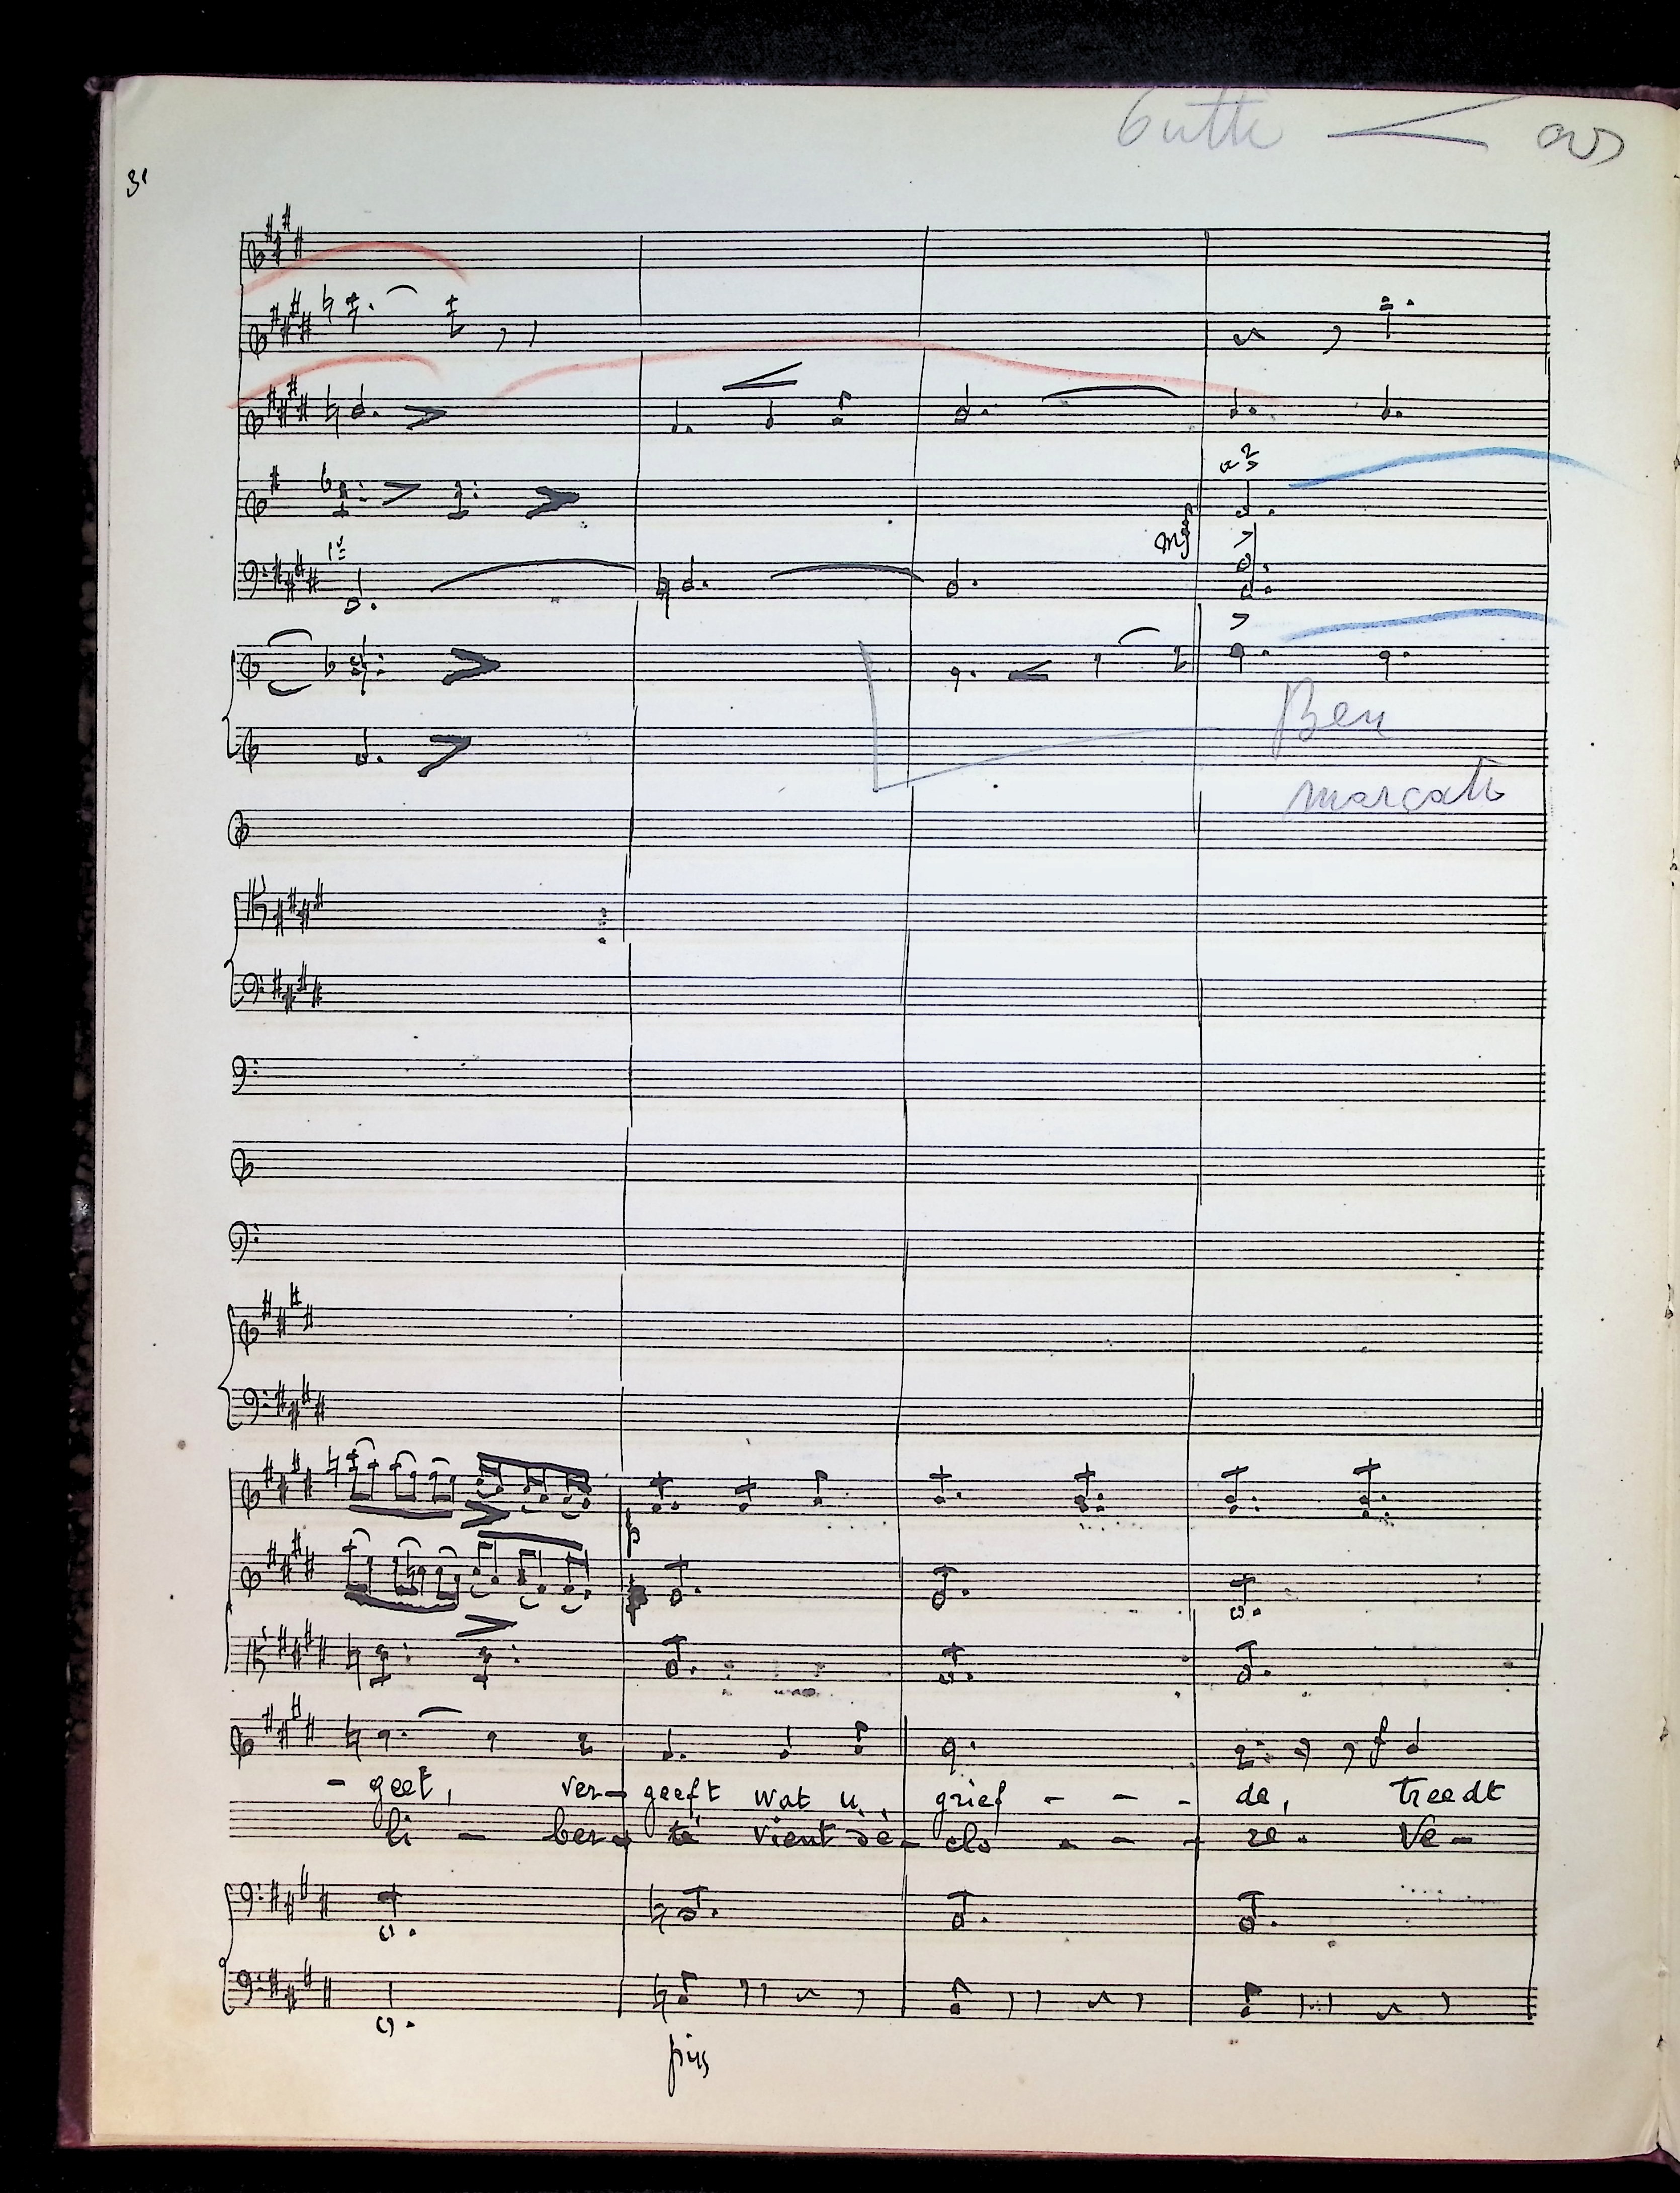 Tutti
a 2
mf
1º
Ben
marcato
p
f
- geet, ver- geeft wat u grief - - - de, Treedt
li - ber- té vient dé- clo - - - re. Ve -
pizz